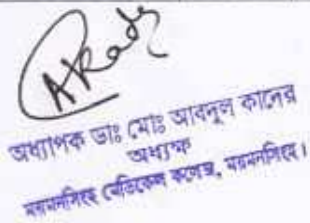 AKader
অধ্যাপক ডাঃ মোঃ আবদুল কাদের
অধ্যক্ষ
ময়মনসিংহ মেডিকেল কলেজ, ময়মনসিংহ।